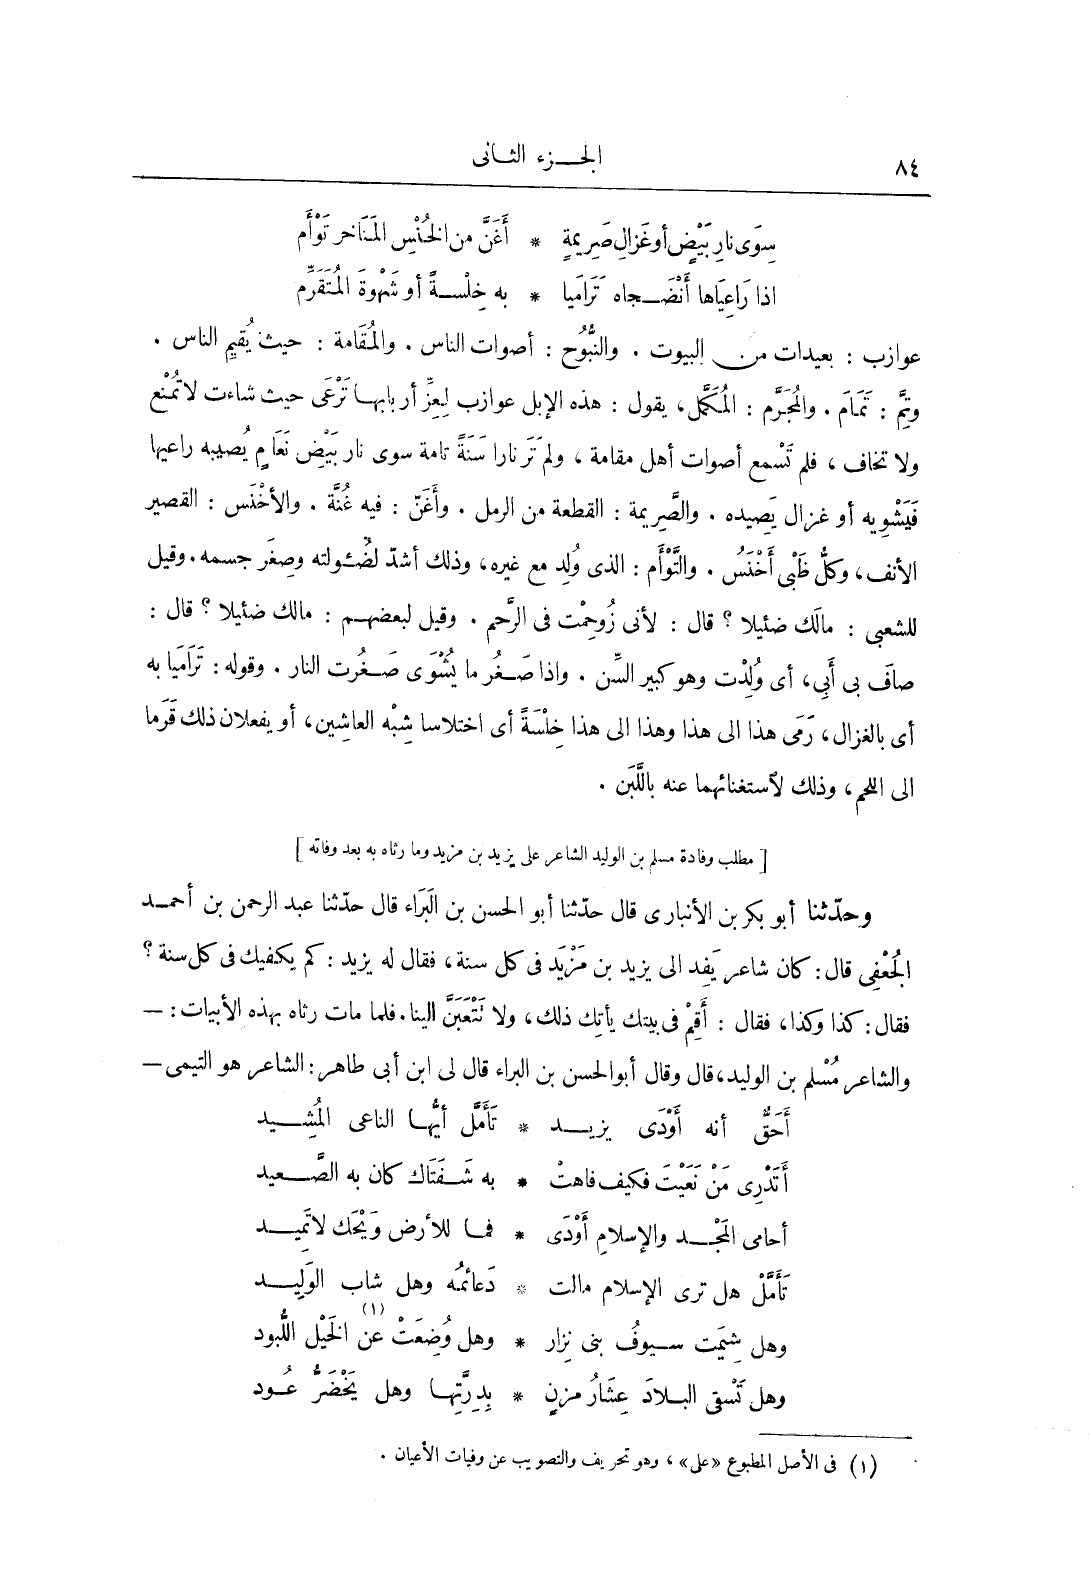 ٨٤
الجـــزء الثـانى
سِوَى نارِ بَيْضٍ أو غَزالِ صَرِيمةٍ * أَغَنَّ من الخُنْسِ المَنَاخر تَوْأَم
اذا رَاعِيَاها أَنْضَـجاه تَرَاميا * به خِلْسـةً أو شَهْوةَ المُتَقَرِّم
عوازب : بعيدات من البيوت . والنُّبُوح : أصوات الناس . والمُقَامة : حيث يُقيم الناس .
وتِمَّ : تَمَامَ . والمُجَرَّم : المُكَمَّل، يقول : هذه الإبل عوازب لِعِزِّ أربابهـا تَرْعَى حيث شاءت لا تُمْنَع
ولا تخاف ، فلم تَسْمع أصوات أهل مقامة ، ولم تَر نارا سَنَةً تامة سوى نار بَيْض نَعَامٍ يُصيبه راعيها
فَيَشْوِيه أو غزال يَصِيده . والصَّرِيمة : القطعة من الرمل . وأَغَنّ : فيه غُنَّة . والأخْنَس : القصير
الأنف، وكلُّ ظَبْى أَخْنَسُ . والتَّوْأَم : الذى وُلِد مع غيره، وذلك أشدّ لضُئولته وصِغَر جسمه. وقيل
للشعبى : مالَك ضئيلا ؟ قال : لأنى زُوحِمْت فى الرَّحم . وقيل لبعضهـم : مالك ضئيلا ؟ قال :
صاف بى أَبِى، أى وُلِدْت وهو كبير السِّن . واذا صَـغُر ما يُشْوَى صَـغُرت النار . وقوله : تَرَامَيا به
أى بالغزال، رَمَى هذا الى هذا وهذا الى هذا خِلْسَةً أى اختلاسا شِبْه العاشِين، أو يفعلان ذلك قَرَما
الى اللحم، وذلك لآستغنائهما عنه باللَّبَن .
[ مطلب وفادة مسلم بن الوليد الشاعر على يزيد بن مزيد وما رثاه به بعد وفاته ]
وحدّثنا أبو بكر بن الأنبارى قال حدّثنا أبو الحسن بن البَرَاء قال حدّثنا عبد الرحمن بن أحمـد
الجُعْفِى قال : كان شاعر يَفِد الى يزيد بن مَزْيَد فى كل سنة، فقال له يزيد : كم يكفيك فى كل سنة ؟
فقال : كذا وكذا، فقال : أَقِمْ فى بيتك يأتِك ذلك، ولا تَتْعَبَنَّ الينا. فلما مات رثاه بهذه الأبيات : —
والشاعر مُسْلم بن الوليد، قال وقال أبو الحسن بن البراء قال لى ابن أبى طاهر : الشاعر هو التيمى —
أَحَقٌّ أنه أَوْدَى يزيـــد * تَأَمَّل أيُّهـا الناعى المُشِـــيد
أَتَدْرِى مَنْ نَعَيْتَ فكيف فاهتْ * به شَـفَتَاك كان به الصَّـعيد
أحامى المَجْـــد والإسلامِ أَوْدَى * فمـا للأرض وَيْحَك لا تَمِيــد
تَأَمَّلْ هل ترى الإسلام مالت * دَعائمُه وهل شاب الوَلِيــد
وهل شِيمَت ســيوفُ بنى نِزار * وهل وُضِعَتْ عن (١) الخَيْل اللُّبود
وهل تَسْقِى البـلادَ عِشَارُ مزنٍ * بِدِرَّتِهـا وهل يَخْضَرُّ عُـود
(١) فى الأصل المطبوع «على» ، وهو تحريف والتصويب عن وفيات الأعيان .